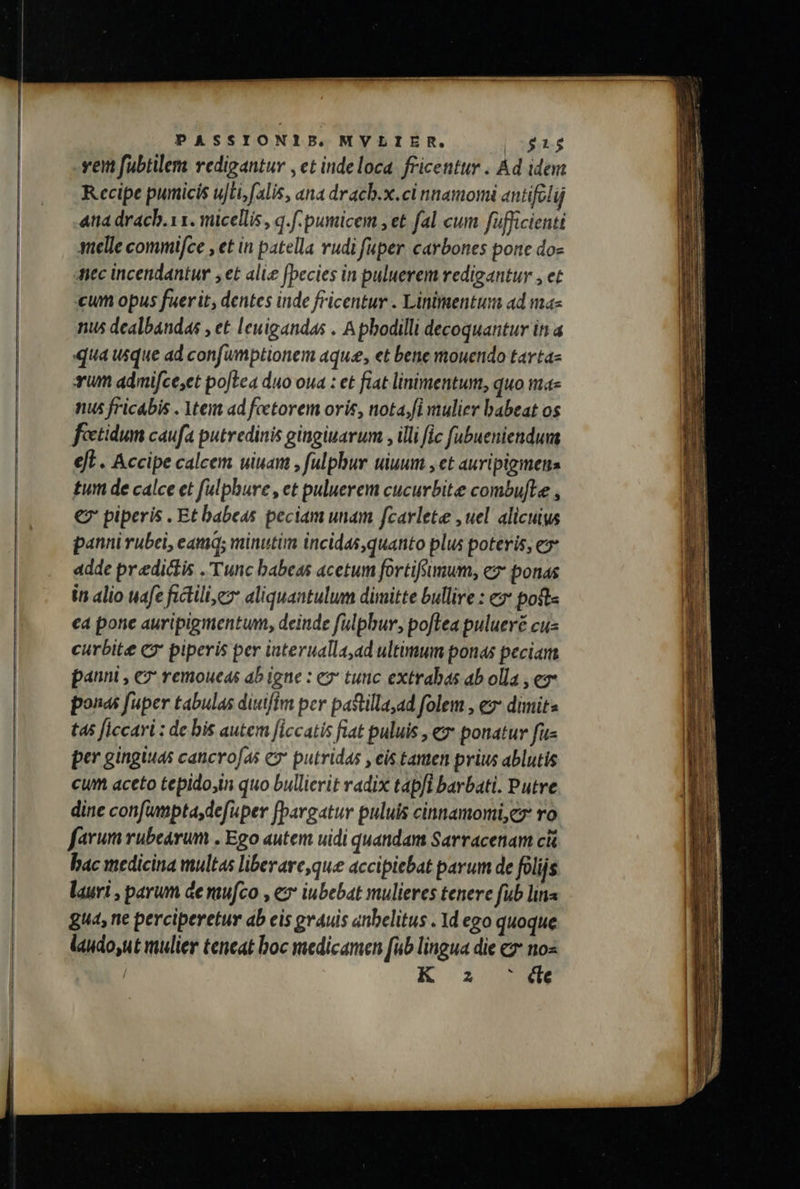 PASSIONIB. MVLIER. 515
rem ſubtilem redigantur , et inde loca fricentur . Ad idem
Recipe pumicis uſti, ſalis, ana drach.x.cinnamomi antifolij
ana drach.11. micellis, q.ſ. pumicem , et ſal cum ſufficienti
melle commiſce , et in patella rudi ſuper carbones pone do=
nec incendantur , et aliæ ſpecies in puluerem redigantur , et
cum opus fuerit, dentes inde fricentur . Linimentum ad ma=
nus dealbandas , et leuigandas . Aphodilli decoquantur in a
qua usque ad conſumptionem aquæ, et bene mouendo tarta=
rum admiſce,et poſtea duo oua : et fiat linimentum, quo ma=
nus fricabis . Item ad fœtorem oris, nota,ſi mulier habeat os
fœtidum cauſa putredinis gingiuarum , illi ſic ſubueniendum
eſt . Accipe calcem uiuam , ſulphur uiuum , et auripigmen=
tum de calce et ſulphure , et puluerem cucurbitæ combuſtæ ,
& piperis . Et habeas peciam unam ſcarletæ , uel alicuius
panni rubei, eamq; minutim incidas,quanto plus poteris, &
adde prædictis . Tunc habeas acetum fortiſsimum, & ponas
in alio uaſe fictili,& aliquantulum dimitte bullire : & poſt=
ea pone auripigmentum, deinde ſulphur, poſtea puluerē cu=
curbitæ & piperis per interualla,ad ultimum ponas peciam
panni , & remoueas ab igne : & tunc extrahas ab olla , &
ponas ſuper tabulas diuiſim per paſtilla,ad ſolem , & dimit=
tas ſiccari : de his autem ſiccatis fiat puluis , & ponatur ſu=
per gingiuas cancroſas & putridas , eis tamen prius ablutis
cum aceto tepido,in quo bullierit radix tapſi barbati. Putre
dine conſumpta,deſuper ſpargatur puluis cinnamomi,& ro
ſarum rubearum . Ego autem uidi quandam Sarracenam cū
hac medicina multas liberare,quæ accipiebat parum de folijs
lauri , parum de muſco , & iubebat mulieres tenere ſub lin=
gua, ne perciperetur ab eis grauis anhelitus . Id ego quoque
laudo,ut mulier teneat hoc medicamen ſub lingua die & no=
K 2 cte